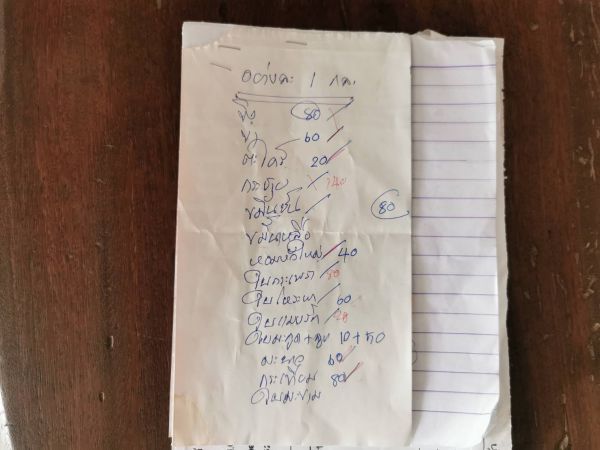 อย่างละ 1 กก.
ขิง 80
ข่า 60
ตะไคร้ 20
กระชาย 140
ขมิ้นชัน 80
ขมิ้นเหลือง
หอมหัวใหญ่ 40
ใบกระเพรา 50
ใบโหระพา 60
ใบแมงรัก
ใบมะกูด+ลูก 10+50
มะนาว 60
กระเทียม 80
ใบมะขาม